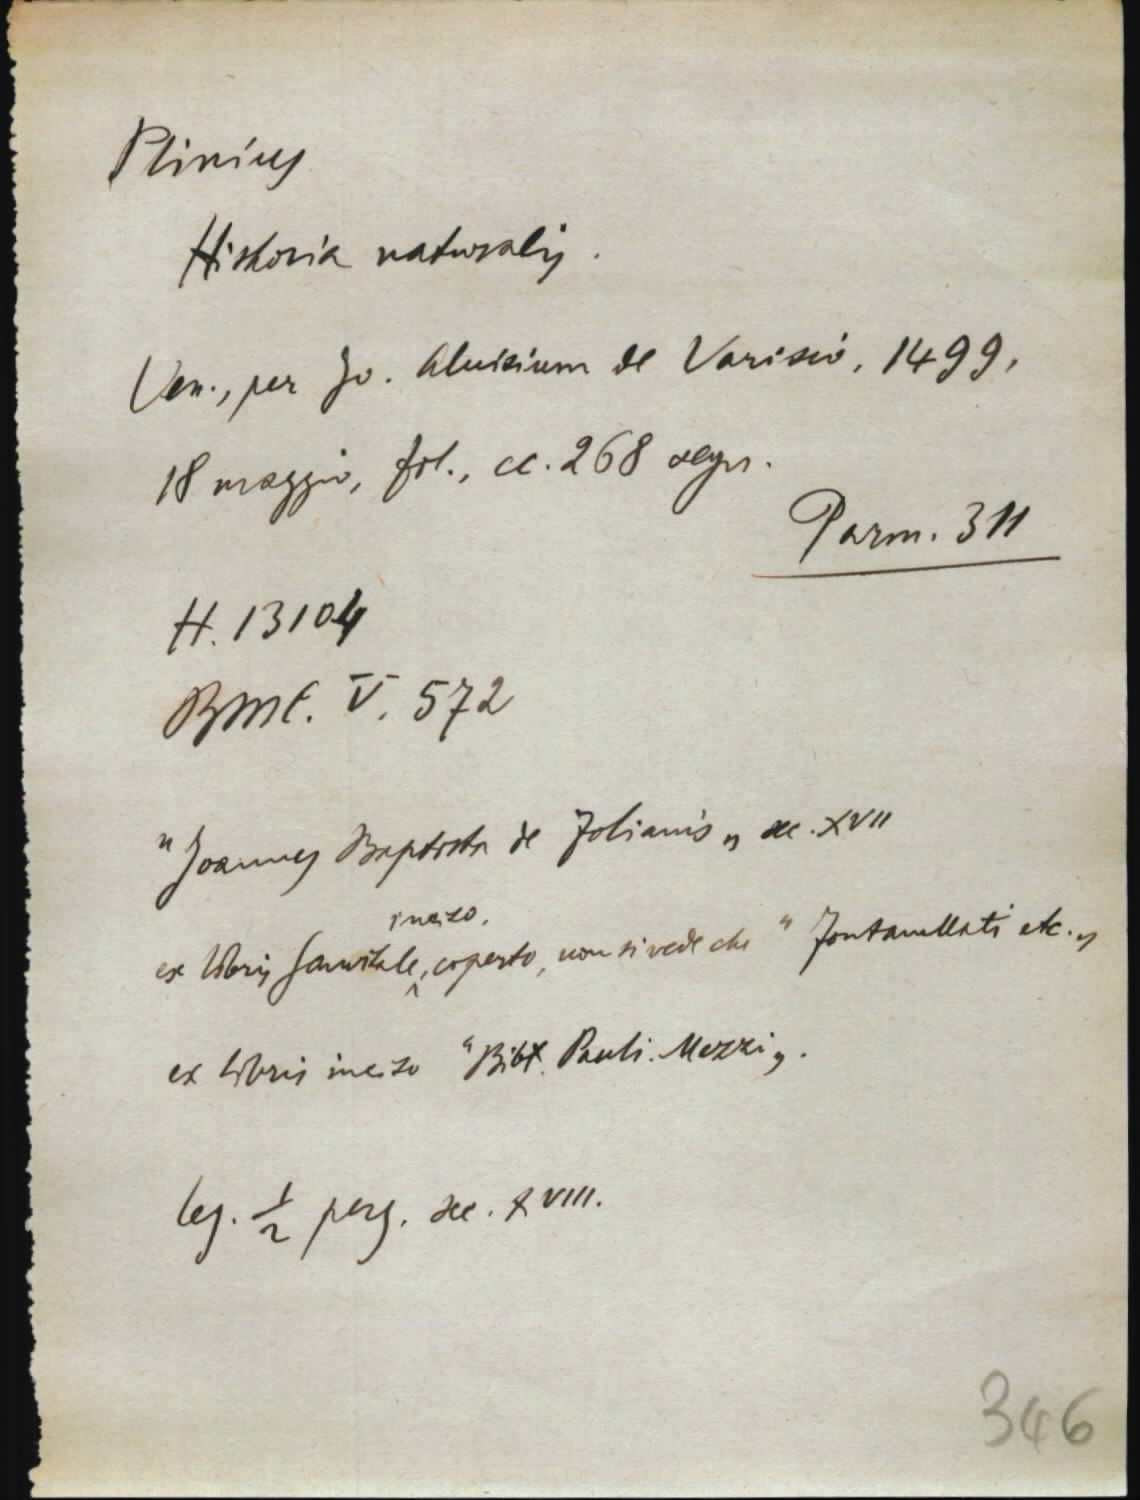 Plinius
Historia naturalis.
Ven., per Jo. Aluisium de Varisio, 1499,
18 maggio, fol., cc. 268 segn.
Parm. 311
H. 13104
BMC. V. 572
"Joannes Baptista de Folianis„ sec. XVII
inciso,
ex libris Sanvitale, coperto, non si vede che "Fontanellati etc.„
ex libris inciso "Bibl. Pauli. Mezzi„.
leg. 1/2 perg. sec. XVIII.
346